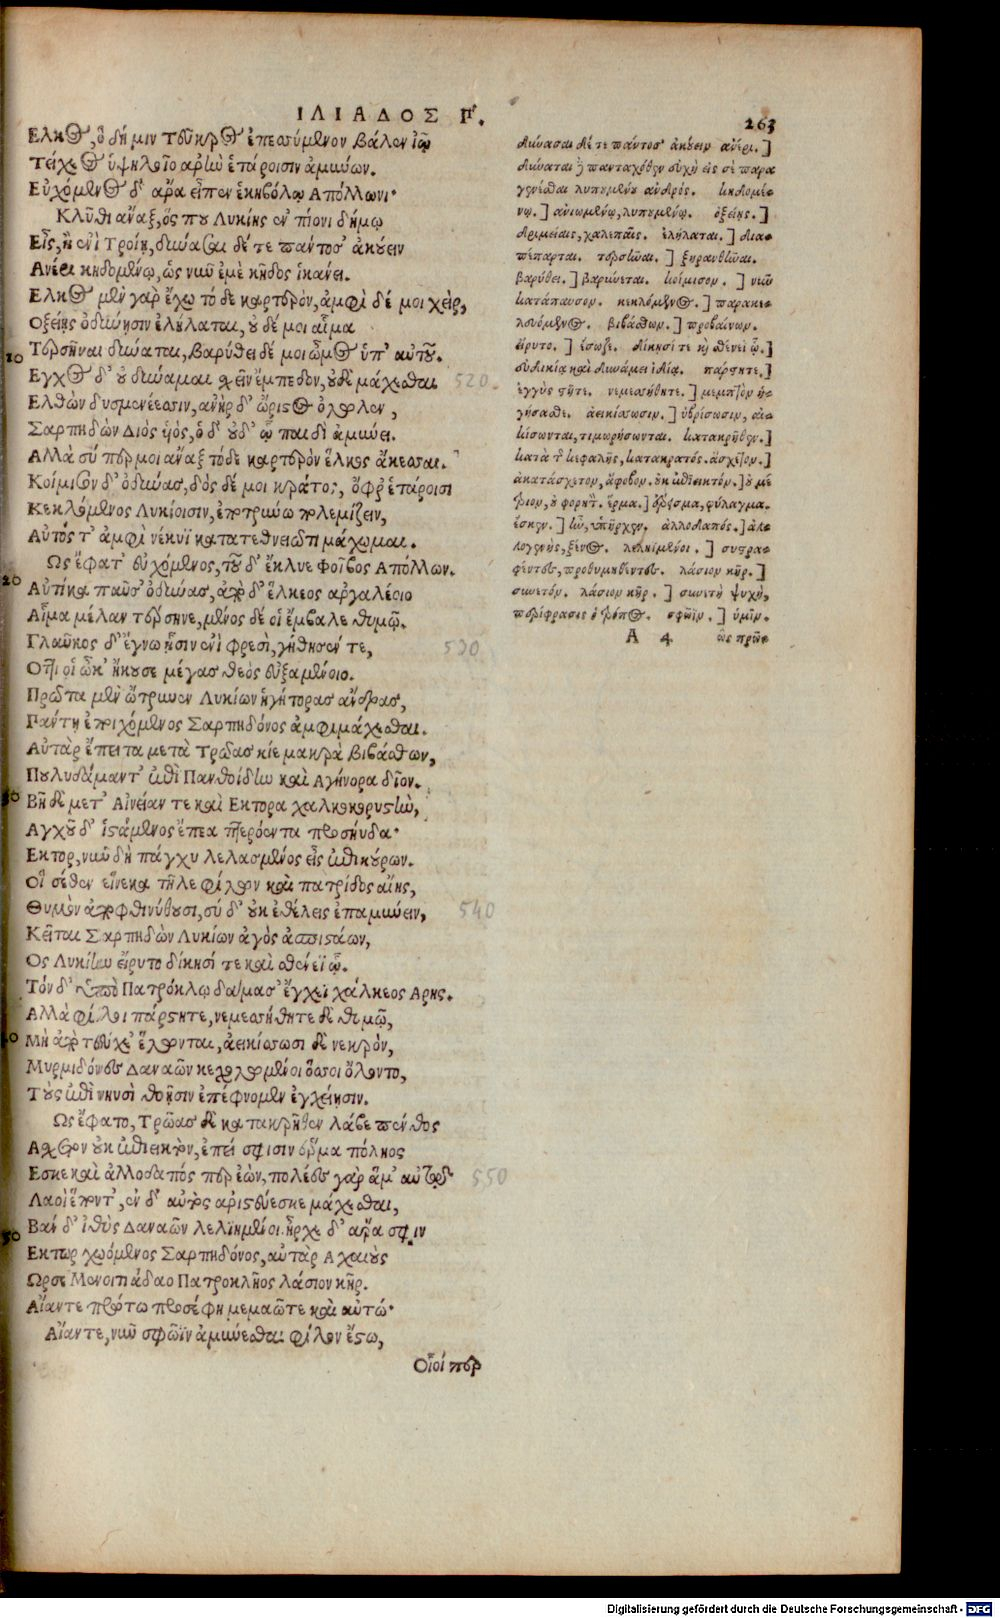 ΙΛΙΑΔΟΣ Π.
263
Ελκος, ὃ δή μιν Τεῦκρος ἐπεσσύμενον βάλεν ἰῷ
Τείχεος ὑψηλοῖο ἀρὴν ἑτάροισιν ἀμύνων.
Εὐχόμενος δ' ἄρα εἶπεν ἑκηβόλῳ Απόλλωνι·
Κλῦθι ἄναξ, ὅς που Λυκίης ἐν πίονι δήμῳ
Εἶς, ἢ ἐνὶ Τροίῃ, δύνασαι δέ τε πάντοσ' ἀκούειν
Ανέρι κηδομένῳ, ὡς νῦν ἐμὲ κῆδος ἱκάνει.
Ελκος μὲν γὰρ ἔχω τόδε καρτερὸν, ἀμφὶ δέ μοι χεὶρ,
Οξείῃς ὀδύνῃσιν ἐλήλαται, οὐδέ μοι αἷμα
10
Τερσῆναι δύναται, βαρύθει δέ μοι ὦμος ὑπ' αὐτοῦ.
Εγχος δ' οὐ δύναμαι σχεῖν ἔμπεδον, οὐδὲ μάχεσθαι
520
Ελθὼν δυσμενέεσσιν, ἀνὴρ δ' ὤριστος ὄλωλεν,
Σαρπηδὼν Διὸς υἱὸς, ὁ δ' οὐδ' ᾧ παιδὶ ἀμύνει.
Αλλὰ σύ πέρ μοι ἄναξ τόδε καρτερὸν ἕλκος ἄκεσσαι.
Κοίμισον δ' ὀδύνας, δὸς δέ μοι κράτος, ὄφρ' ἑτάροισι
Κεκλόμενος Λυκίοισιν, ἐποτρύνω πολεμίζειν,
Αὐτός τ' ἀμφὶ νέκυϊ κατατεθνειῶτι μάχωμαι.
Ως ἔφατ' εὐχόμενος, τοῦ δ' ἔκλυε Φοῖβος Απόλλων.
20
Αὐτίκα παῦσ' ὀδύνας, ἀπὸ δ' ἕλκεος ἀργαλέοιο
Αἷμα μέλαν τέρσηνε, μένος δέ οἱ ἔμβαλε θυμῷ.
Γλαῦκος δ' ἔγνω ᾗσιν ἐνὶ φρεσὶ, γήθησέν τε,
530
Οττι οἱ ὦκ' ἤκουσε μέγας θεὸς εὐξαμένοιο.
Πρῶτα μὲν ὤτρυνεν Λυκίων ἡγήτορας ἄνδρας,
Πάντῃ ἐποιχόμενος Σαρπηδόνος ἀμφιμάχεσθαι.
Αὐτὰρ ἔπειτα μετὰ Τρῶας κίε μακρὰ βιβάσθων,
Πουλυδάμαντ' ἐπὶ Πανθοίδην καὶ Αγήνορα δῖον.
30
Βῆ δὲ μετ' Αἰνείαν τε καὶ Εκτορα χαλκοκορυστὴν,
Αγχοῦ δ' ἱστάμενος ἔπεα πτερόεντα προσηύδα·
Εκτορ, νῦν δὴ πάγχυ λελασμένος εἶς ἐπικούρων.
Οἳ σέθεν εἵνεκα τῆλε φίλων καὶ πατρίδος αἴης,
Θυμὸν ἀποφθινύθουσι, σὺ δ' οὐκ ἐθέλεις ἐπαμύνειν,
540
Κεῖται Σαρπηδὼν Λυκίων ἀγὸς ἀσπιστάων,
Ος Λυκίην εἴρυτο δίκησί τε καὶ σθένεϊ ᾧ.
Τὸν δ' ὑπὸ Πατρόκλῳ δάμασ' ἔγχεϊ χάλκεος Αρης.
Αλλὰ φίλοι πάρστητε, νεμεσήθητε δὲ θυμῷ,
40
Μὴ ἀπὸ τεύχε' ἕλωνται, ἀεικίσσωσι δὲ νεκρὸν,
Μυρμιδόνες Δαναῶν κεχολωμένοι ὅσσοι ὄλοντο,
Τοὺς ἐπὶ νηυσὶ θοῇσιν ἐπέφνομεν ἐγχείῃσιν.
Ως ἔφατο, Τρῶας δὲ κατακρῆθεν λάβε πένθος
Ασχετον οὐκ ἐπιεικτὸν, ἐπεί σφισιν ἕρμα πόληος
Εσκε καὶ ἀλλοδαπός περ ἐὼν, πολέες γὰρ ἅμ' αὐτῷ
550
Λαοὶ ἕποντ', ἐν δ' αὐτὸς ἀριστεύεσκε μάχεσθαι,
50
Βὰν δ' ἰθὺς Δαναῶν λελιημένοι. ἦρχε δ' ἄρα σφιν
Εκτωρ χωόμενος Σαρπηδόνος, αὐτὰρ Αχαιοὺς
Ωρσε Μενοιτιάδαο Πατροκλῆος λάσιον κῆρ.
Αἴαντε πρώτω προσέφη μεμαῶτε καὶ αὐτώ·
Αἴαντε, νῦν σφῶϊν ἀμύνεσθαι φίλον ἔστω,
Οἷοί περ
δύνασαι δέ τε πάντοσ' ἀκούειν ἀνέρι.]
δύνασαι δὲ πανταχόθεν συχῇ εἰς σὲ παρα
γενέσθαι λυπουμένου ἀνδρός. κηδομέ-
νῳ.] ἀνιωμένῳ, λυπουμένῳ. ὀξείῃς.]
δριμείαις, χαλεπαῖς. ἐλήλαται.] δια-
πέπαρται. τερσῆναι.] ξηρανθῆναι.
βαρύθει.] βαρύνεται. κοίμισον.] νῦν
κατάπαυσον. κεκλόμενος.] παρακε-
λευόμενος. βιβάσθων.] προβαίνων.
εἴρυτο.] ἔσωζε. δίκησί τε καὶ σθένεϊ ᾧ.]
σὺ δικίᾳ καὶ δυνάμει ἰδίᾳ. πάρστητε.]
ἐγγὺς στῆτε. νεμεσήθητε.] μεμπτὸν ἡ-
γήσασθε. ἀεικίσωσιν.] ὑβρίσωσιν, αἰ-
κίσωνται, τιμωρήσωνται. κατακρῆθεν.]
κατὰ τῆς κεφαλῆς, κατακρατός. ἄσχετον.]
ἀκατάσχετον, ἄφοβον. οὐκ ἐπιεικτόν.] οὐ μέ
τριον, οὐ φορητόν. ἕρμα.] ἔρεισμα, φύλαγμα.
ἔσκεν.] ἦν, ὑπῆρχεν. ἀλλοδαπός.] ἀλ-
λογενὴς, ξένος. λελιημένοι.] συστρα-
φέντες, προθυμηθέντες. λάσιον κῆρ.]
συνετόν. λάσιον κῆρ.] συνετὴ ψυχὴ,
περίφρασις ὁ τρόπος. σφῶϊν.] ὑμῖν.
Α 4 ὡς πρῶ-
Digitalisierung gefördert durch die Deutsche Forschungsgemeinschaft - DFG